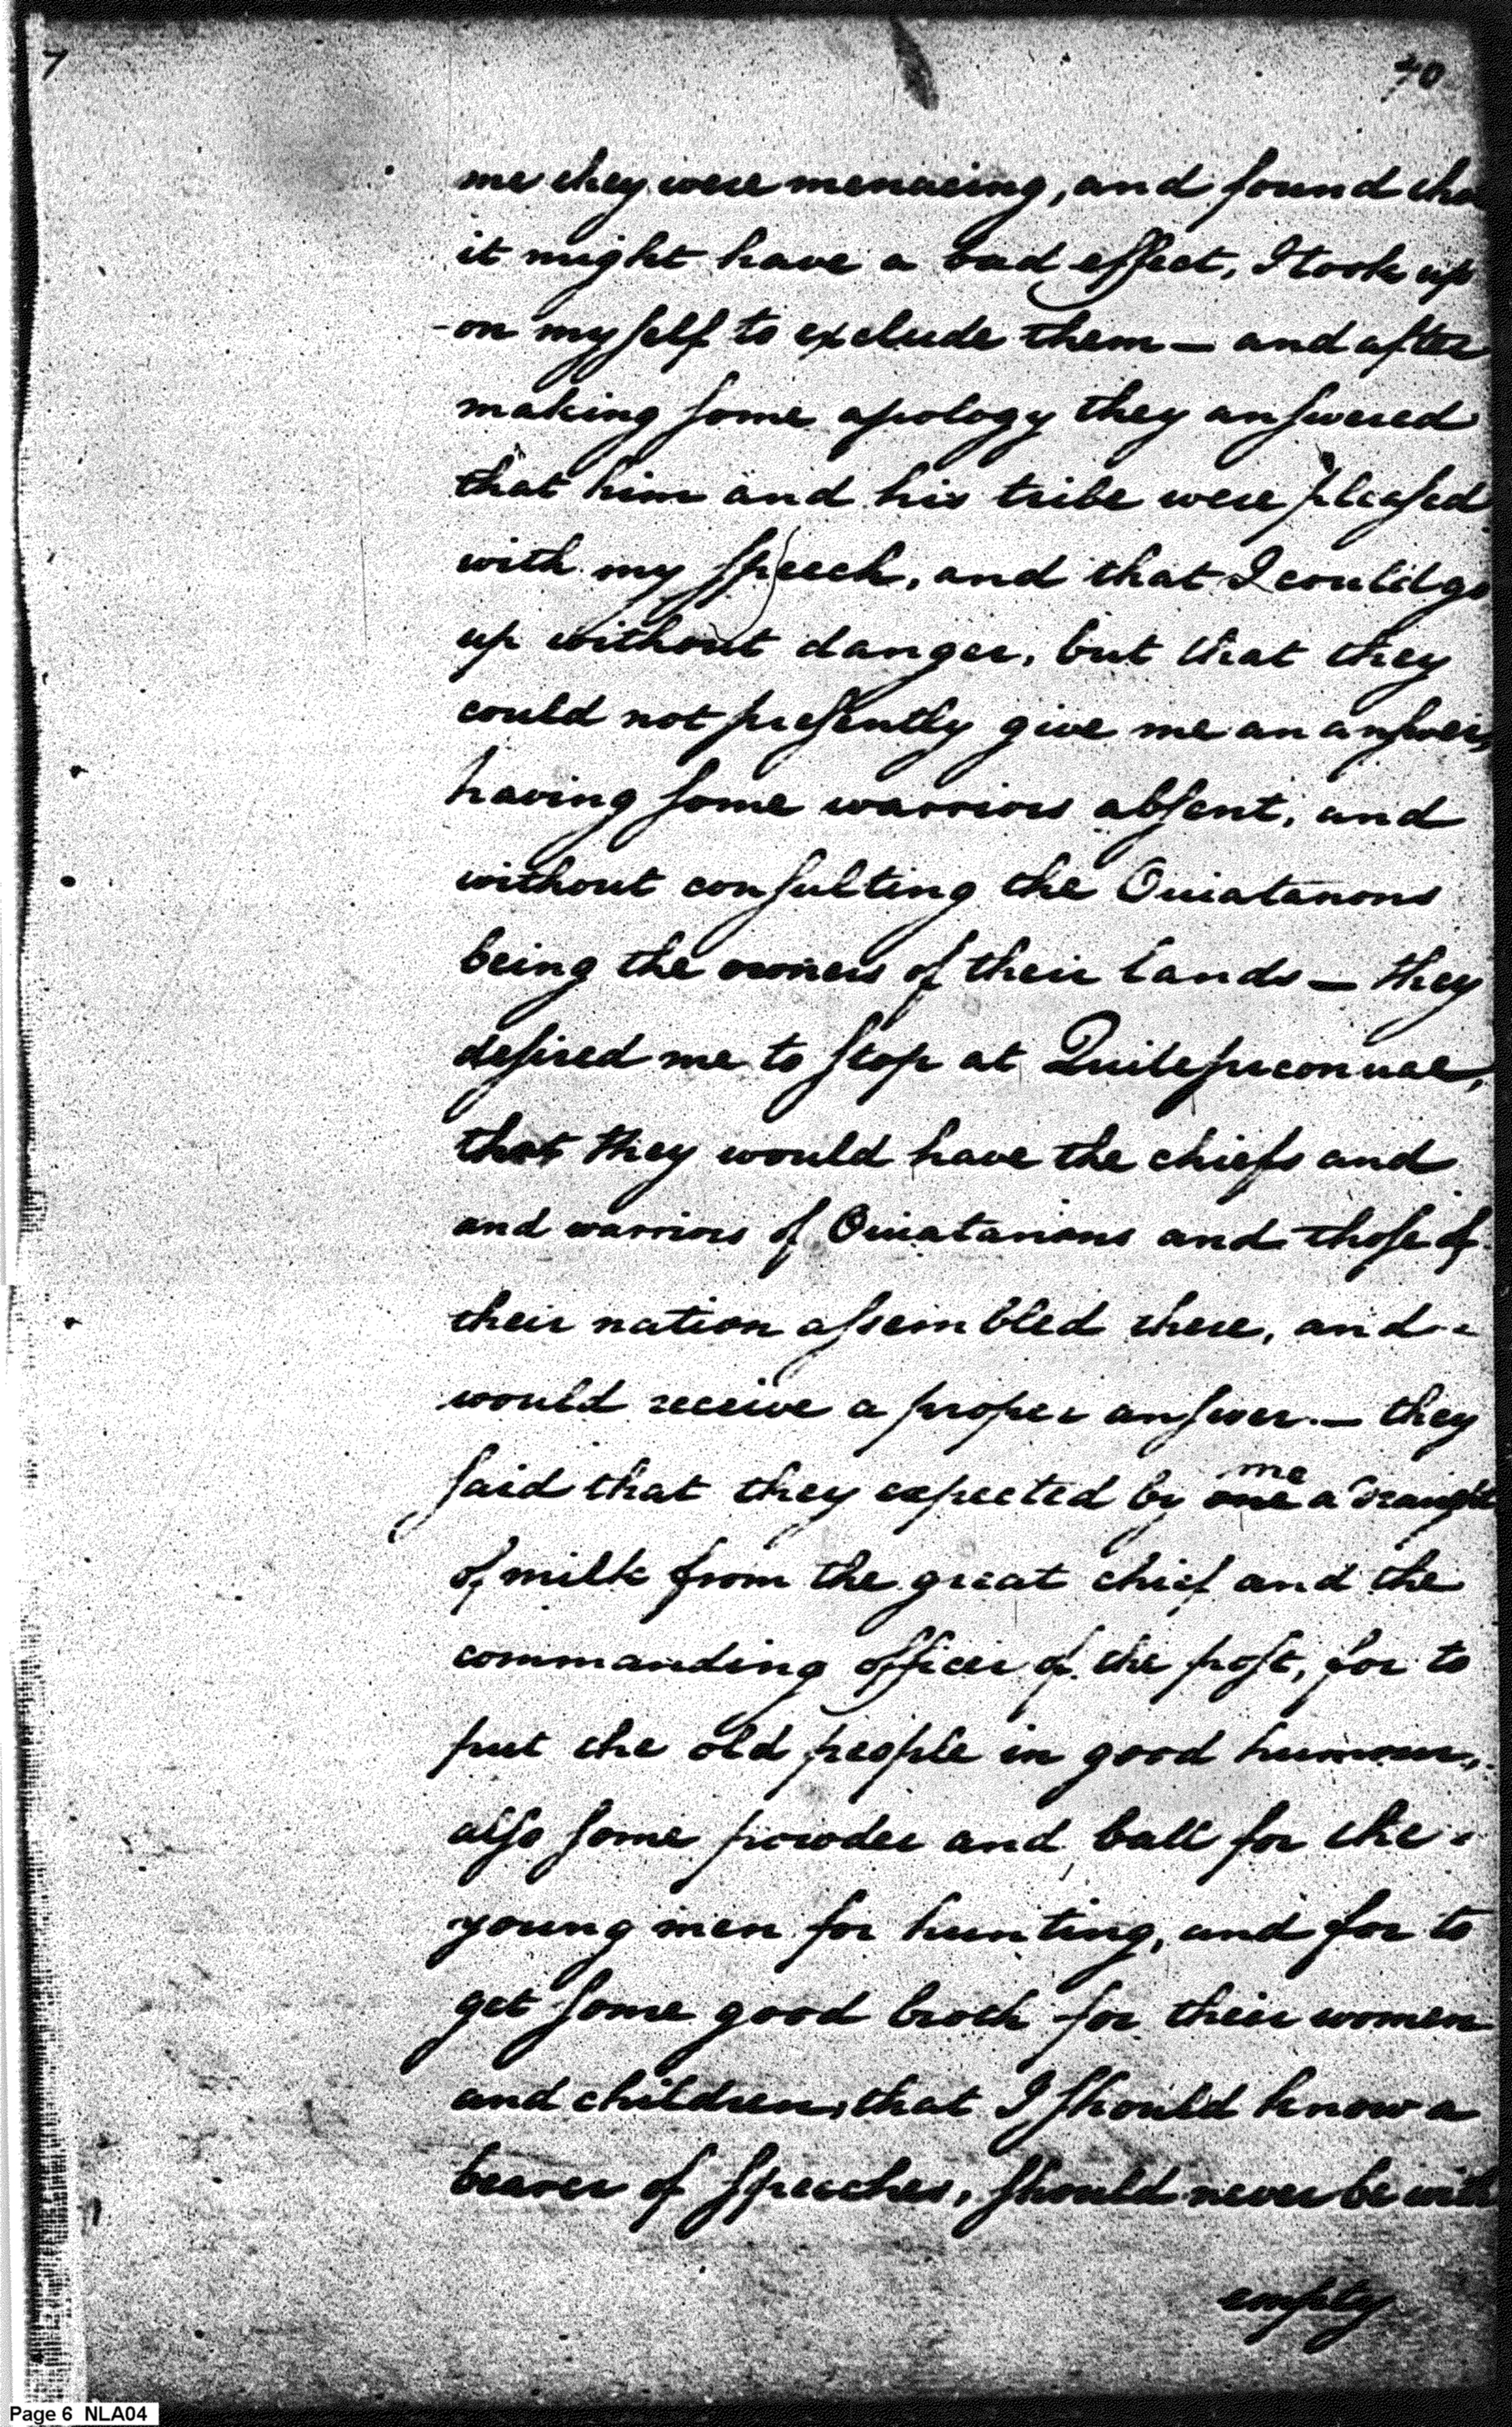 7
40
me they were menacing, and found tha
it might have a bad effect, I took up
-on myself to exclude them — and after
making some apology they answered
that him and his tribe were pleased
with my speech, and that I could go
up without danger, but that they
could not presently give me an answer,
having some warriors absent, and
without consulting the Ouiatanons
being the owners of their lands — they
desired me to stop at Quitepiconuae,
that they would have the chiefs and
and warriors of Ouiatanons and those of
their nation assembled there, and
would receive a proper answer. — they
said that they expected by me a draught
of milk from the great chief and the
commanding officer of the post, for to
put the old people in good humour,
also some powder and ball for the
young men for hunting, and for to
get some good broth for their women
and children, that I should know a
bearer of speeches, should never be with
empty
Page 6 NLA04